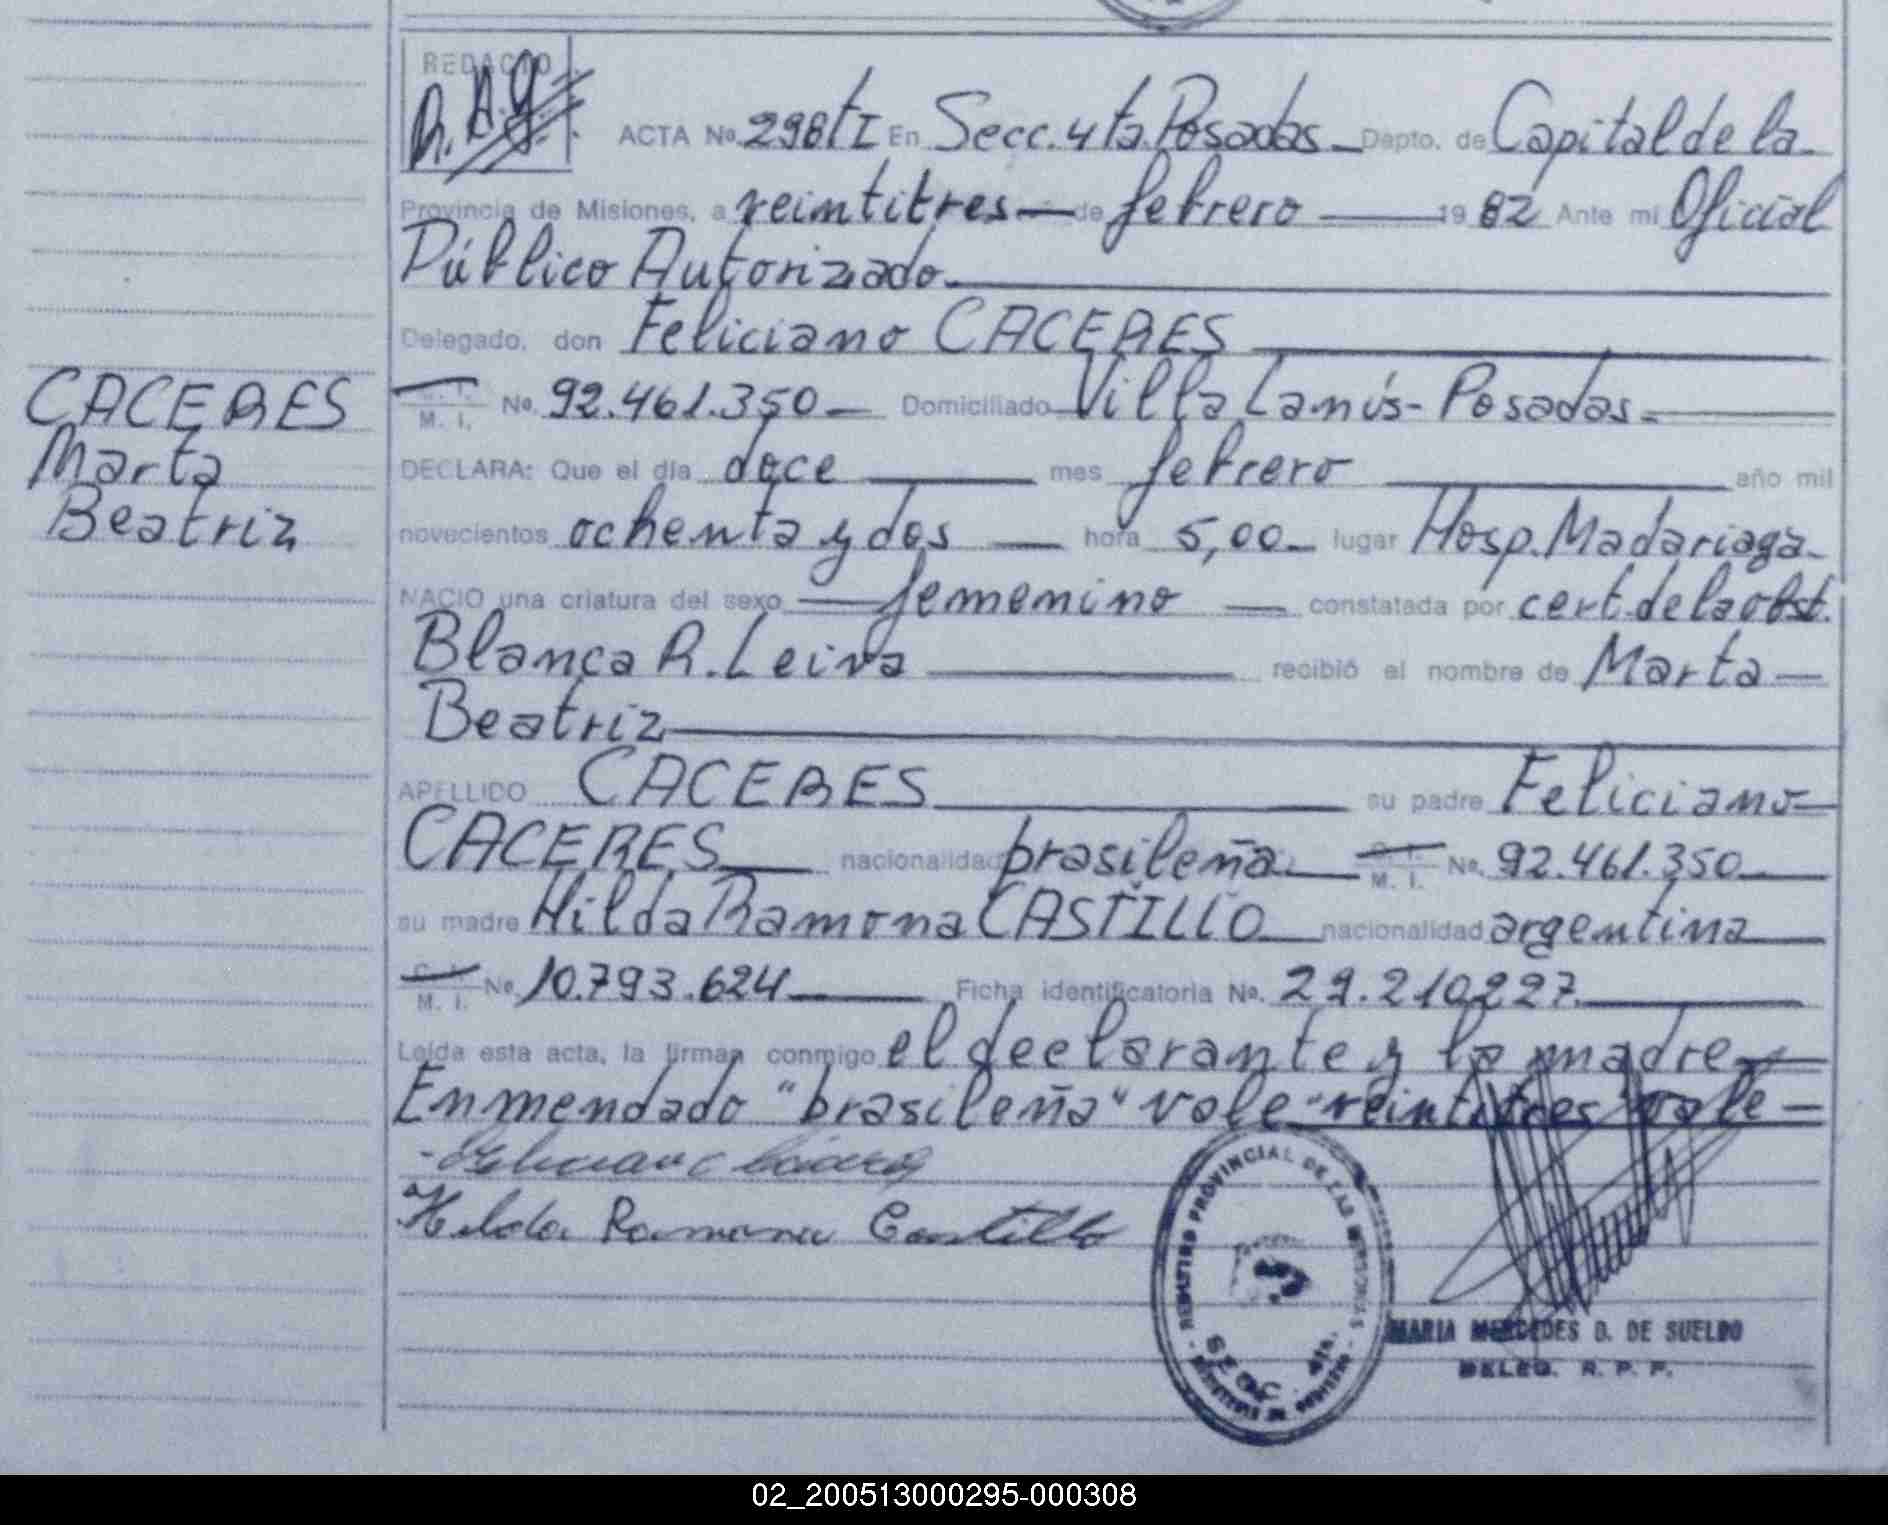 REDACTO
R.A.G.
ACTA No. 298 tI En Secc. 4ta. Posadas Dapto. de Capital de la
Provincia de Misiones, a veintitres de febrero 1982 Ante mi Oficial
Público Autorizado.
Delegado, don Feliciano CACERES
C. I.
M. I. No. 92.461.350 Domiciliado Villa Lanús - Posadas
DECLARA: Que el día doce mes febrero año mil
novecientos ochenta y dos hora 5,00 lugar Hosp. Madariaga
NACIO una criatura del sexo femenino constatada por cert. de la obst.
Blanca R. Leiva recibió el nombre de Marta
Beatriz
APELLIDO CACERES su padre Feliciano
CACERES nacionalidad brasileña C. I.
M. I. No. 92.461.350
su madre Hilda Ramona CASTILLO nacionalidad argentina
C. I.
M. I. No. 10.793.624 Ficha identificatoria No. 29.210227
Leída esta acta, la firman conmigo el declarante y la madre
Enmendado "brasileña" vale - veintitres "vale
Feliciano Cáceres
Hilda Ramona Castillo
CACERES
Marta
Beatriz
REGISTRO PROVINCIAL DE LAS PERSONAS
SECC. 4ta.
MINISTERIO DE GOBIERNO
MARIA MERCEDES D. DE SUELDO
DELEG. R. P. P.
02_200513000295-000308